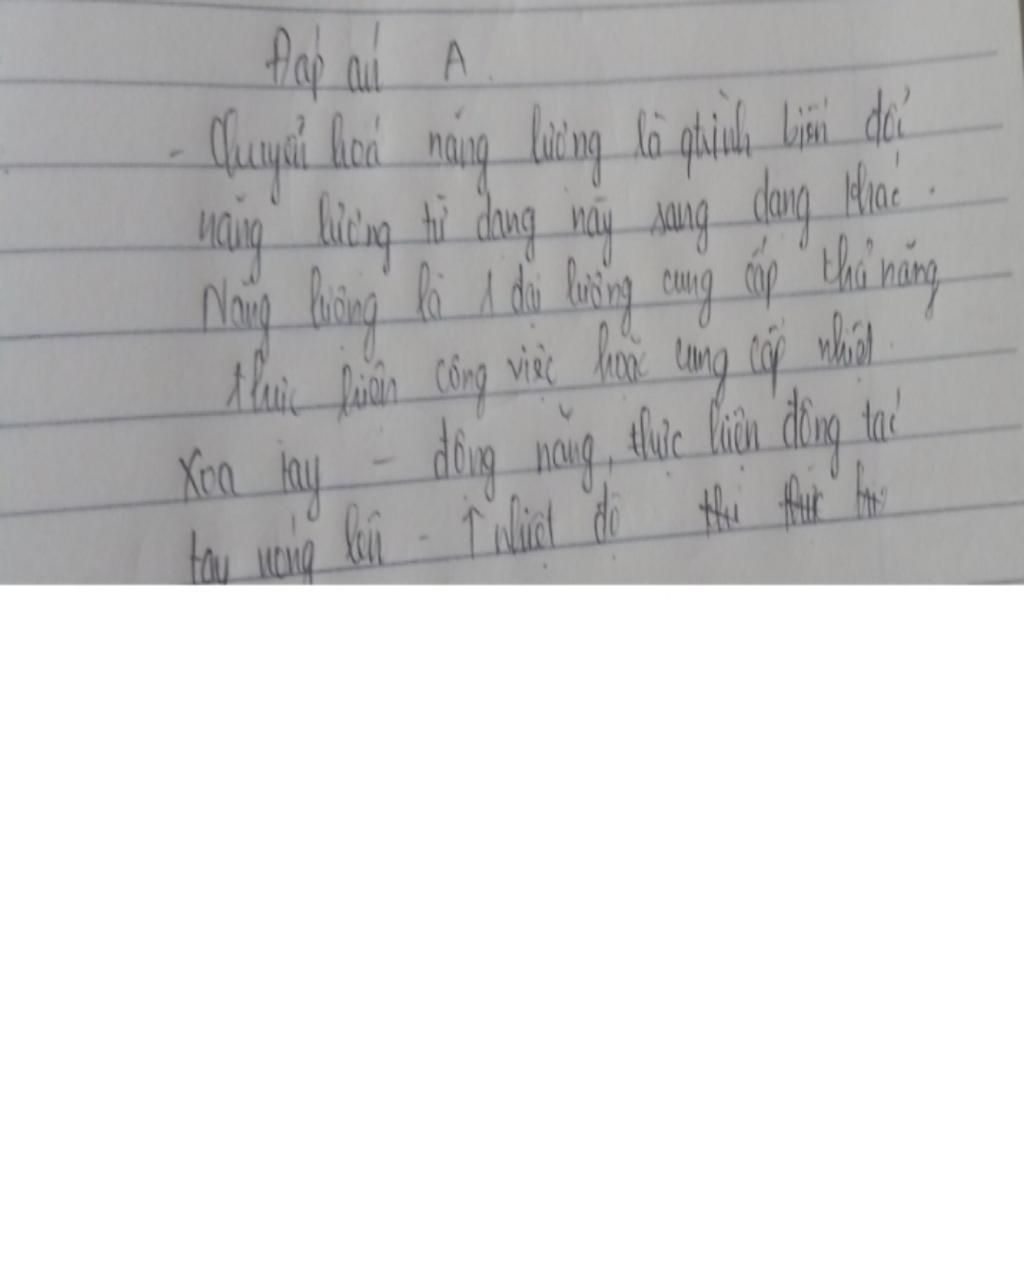 Đáp án A.
- Chuyển hoá năng lượng là qtrình biến đổi
năng lượng từ dạng này sang dạng khác.
Năng lượng là 1 đại lượng cung cấp khả năng
thực hiện công việc hoặc cung cấp nhiệt.
Xoa tay - động năng, thực hiện động tác
tay nóng lên - ↑ nhiệt độ